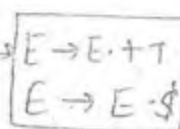 E → E · + T
E → E · $